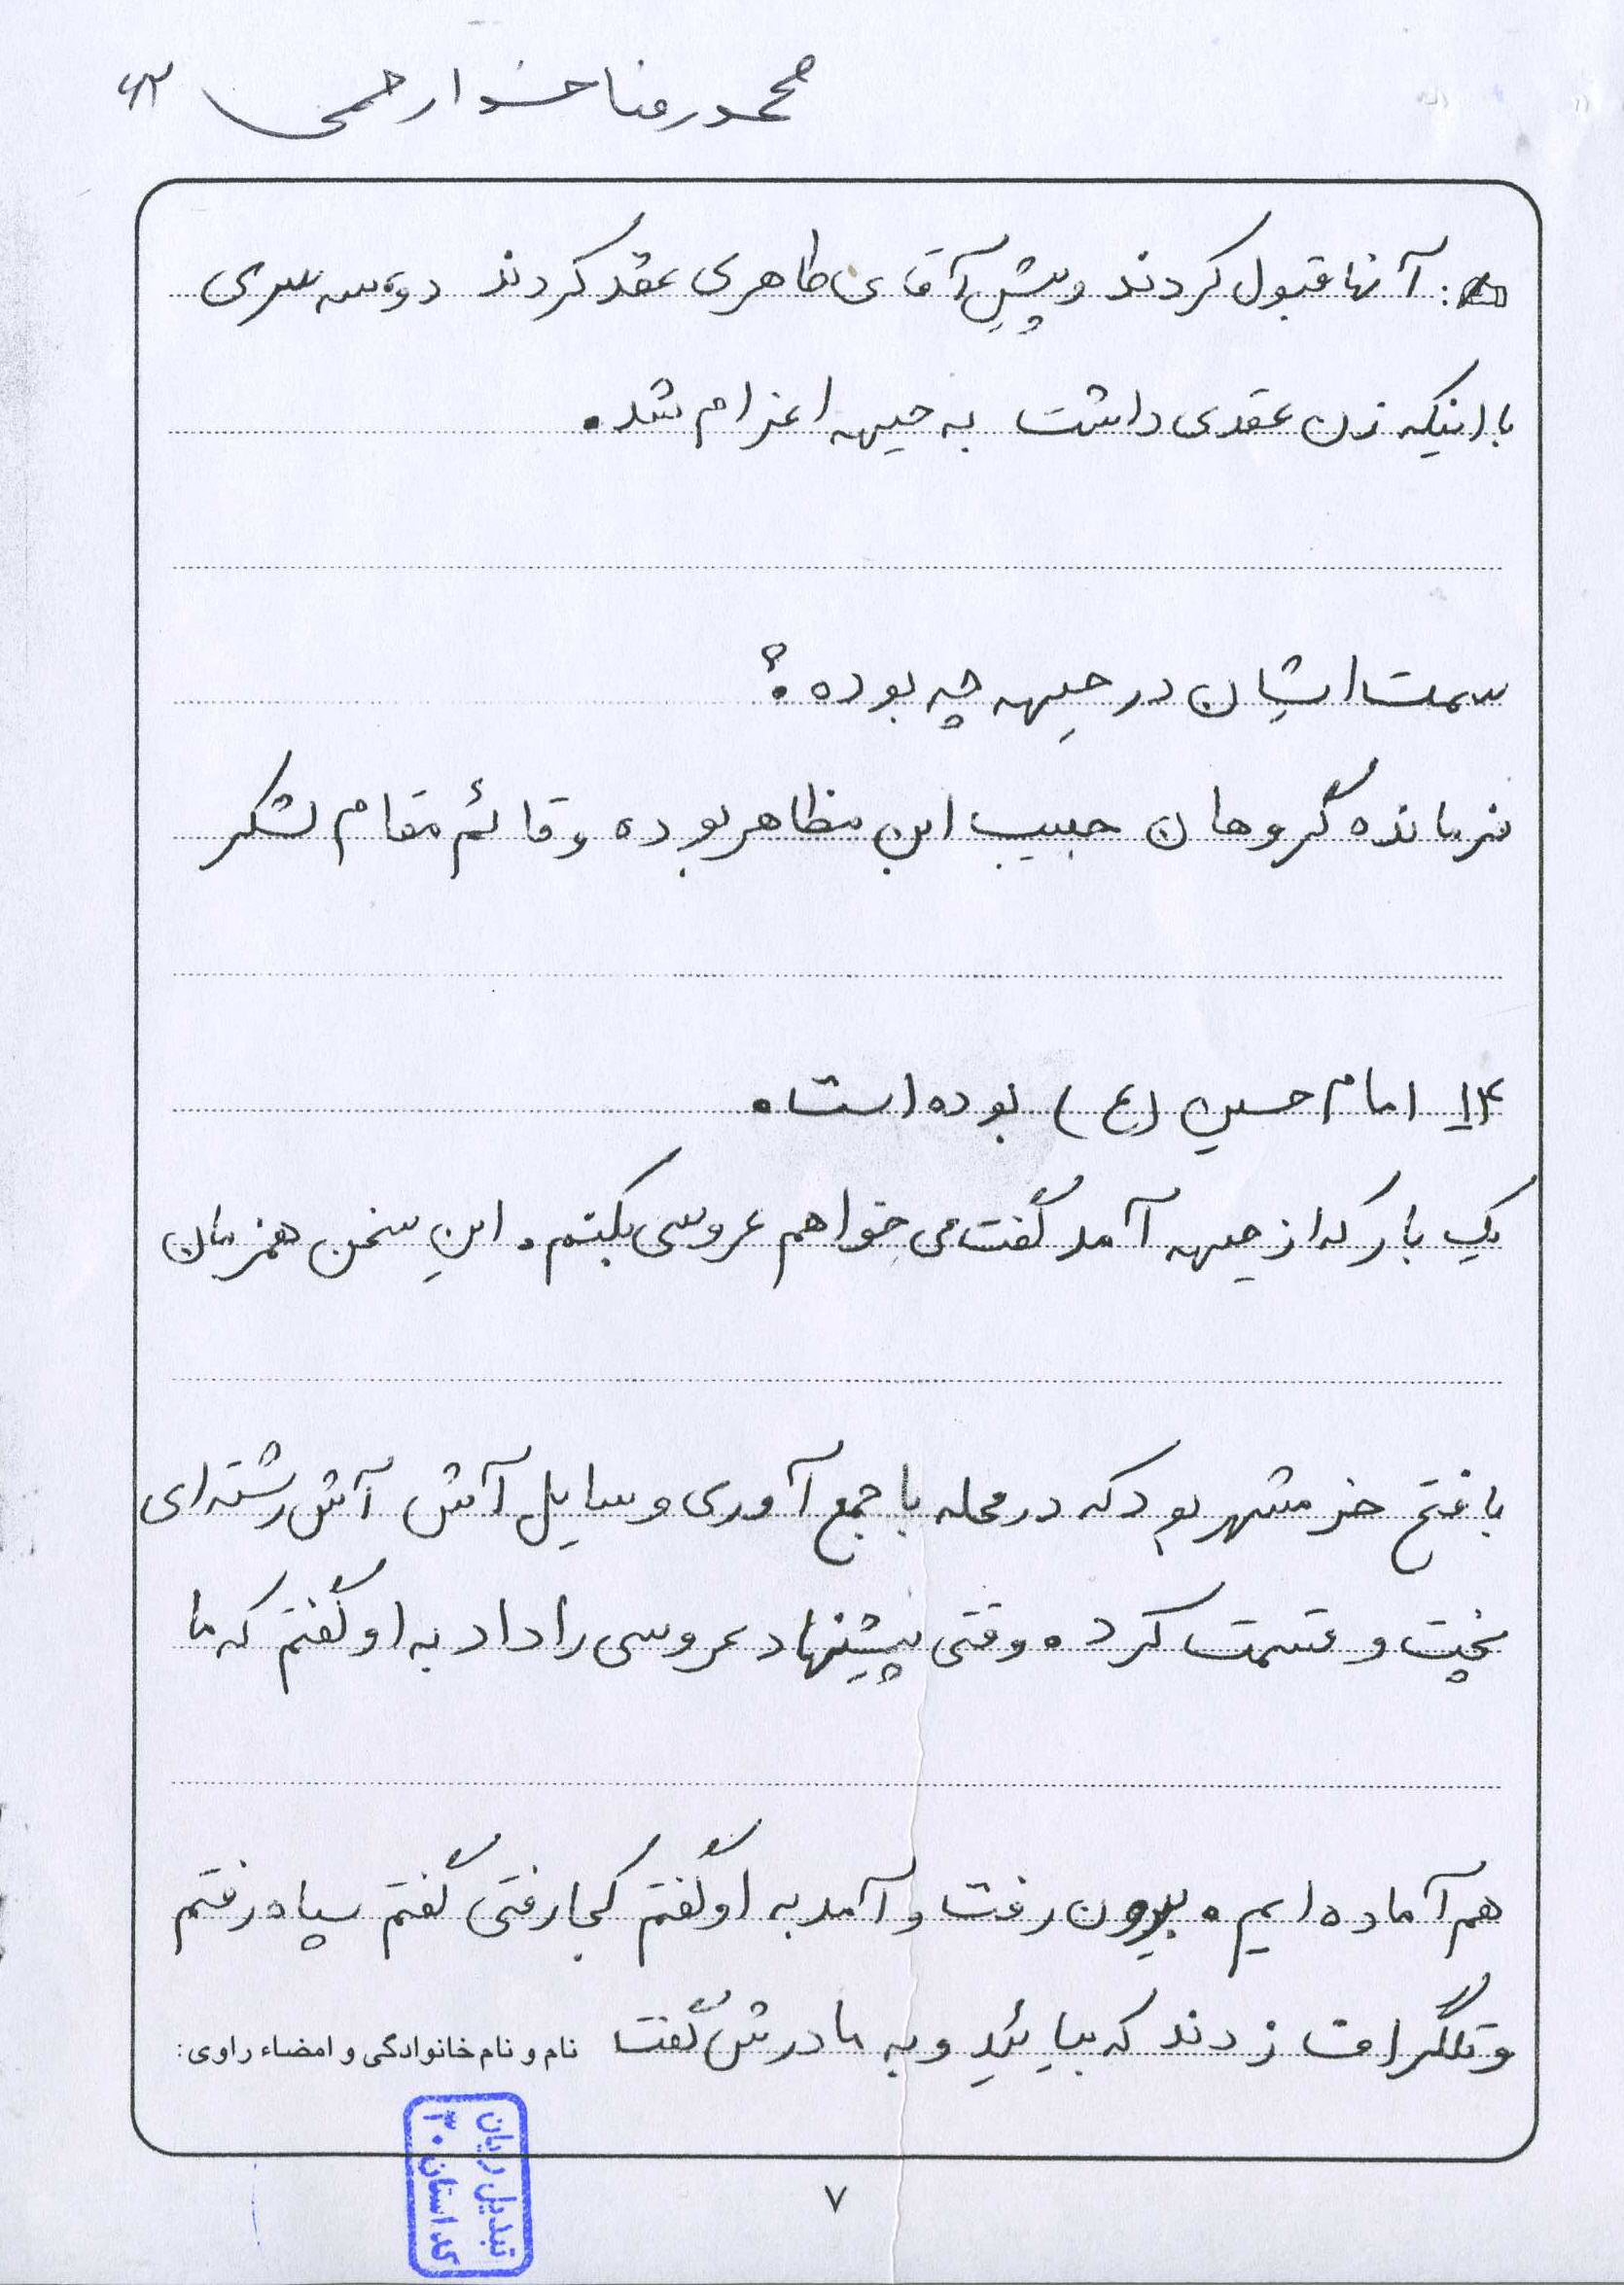 محمدرضا خسوارحمی ۶۲
آنها قبول کردند و پیش آقای طاهری عقد کردند دو سه سری
با اینکه زن عقدی داشت به جبهه اعزام شد.
سمت ایشان در جبهه چه بوده؟
فرمانده گروهان حبیب ابن مظاهر بوده و قائم مقام لشکر
۱۴ امام حسین (ع) بوده است.
یک بار که از جبهه آمد گفت می خواهم عروسی بکنم. این سخن همزمان
با فتح خرمشهر بود که در محله با جمع آوری وسایل آش آش رشته ای
پخت و قسمت کرد. وقتی پیشنهاد عروسی را داد به او گفتم که ما
هم آماده ایم. بیرون رفت و آمد به او گفتم کجا رفتی گفتم سپاه رفتم
و تلگراف زدند که بیائید و به مادرش گفت
نام و نام خانوادگی و امضاء راوی:
تبدیل ریان
کد استان ۳۰
۷